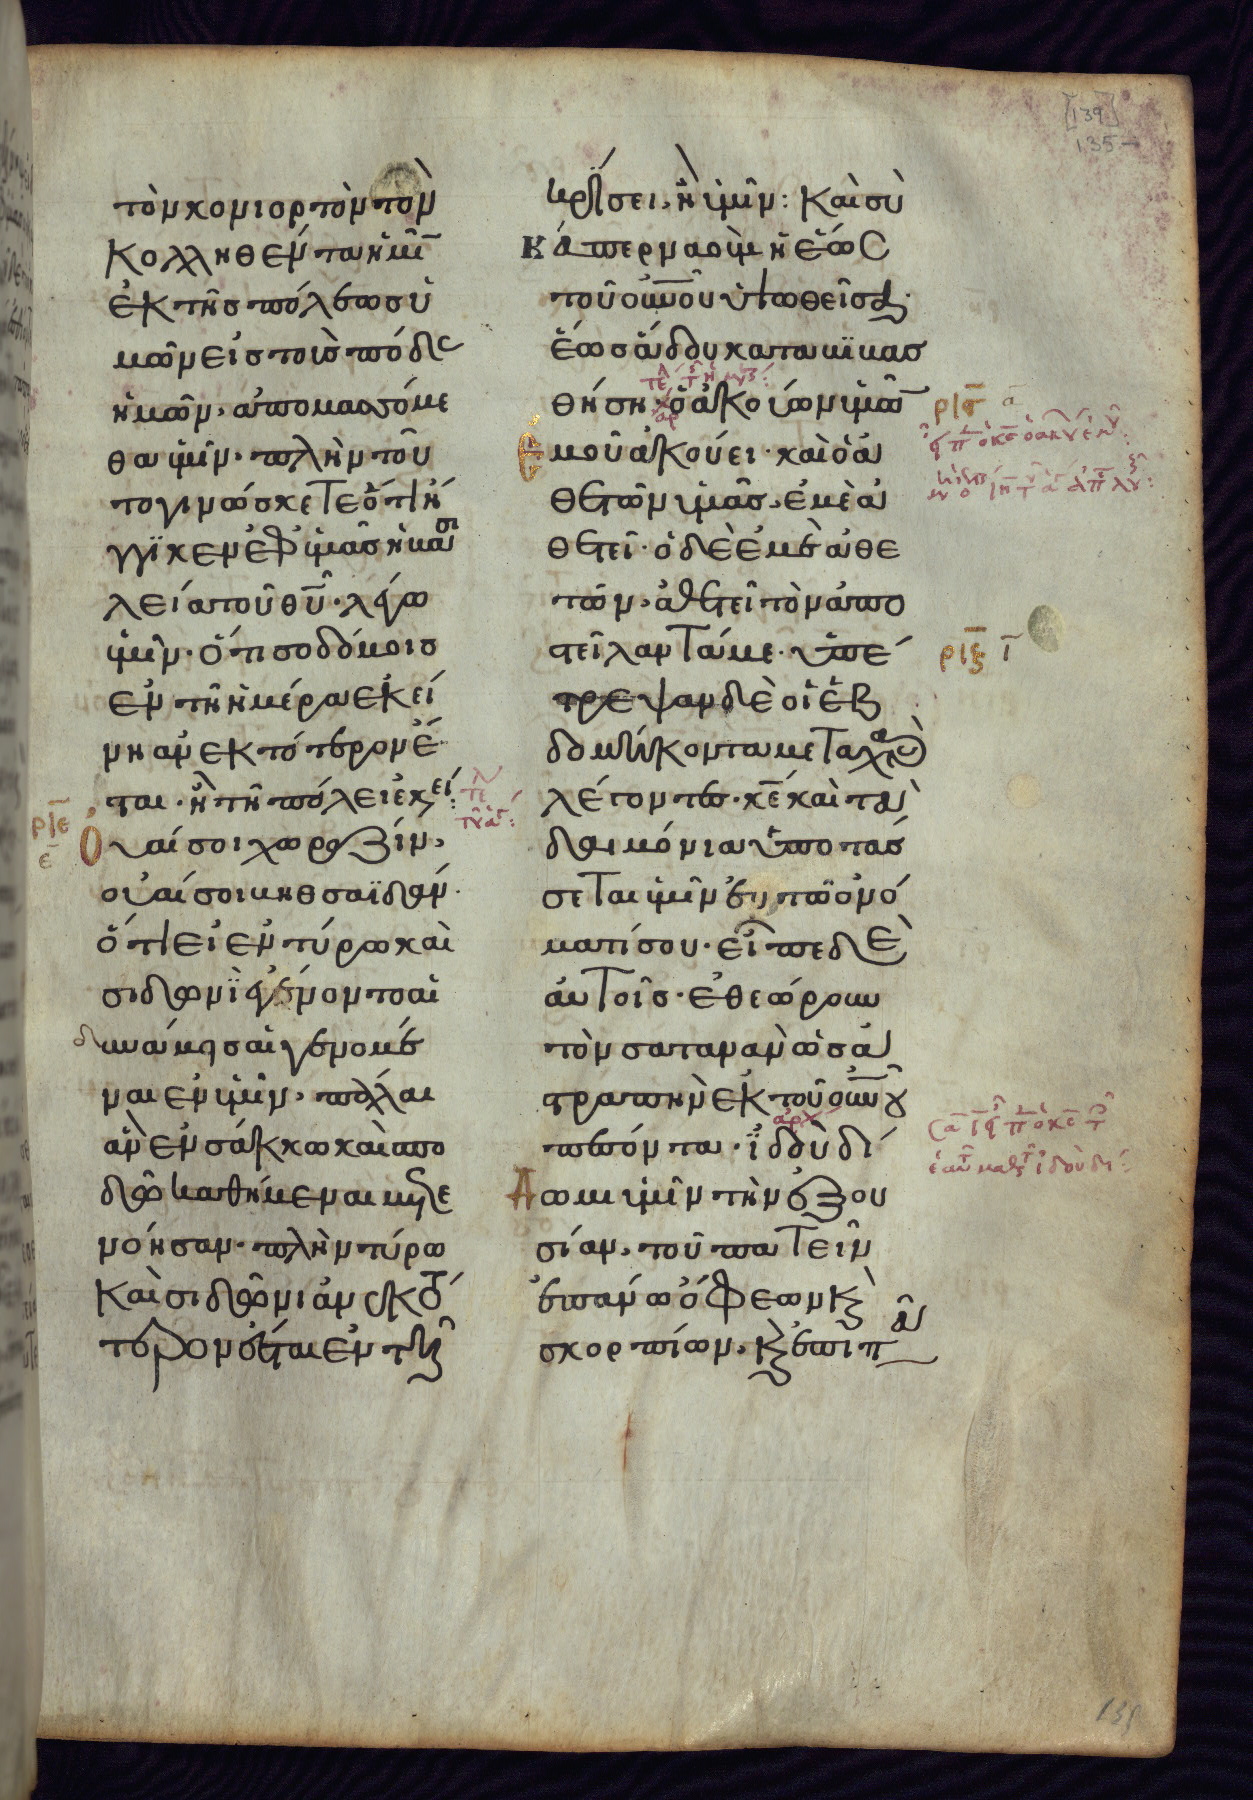 [139]
135
τὸν κονιορτὸν τὸν
κολληθέντα ἡμῖ̅
ἐκ τῆς πόλεως ὑ
μῶν εἰς τοὺς πόδας
ἡμῶν· ἀπομασσόμε
θα ὑμῖν· πλὴν τοῦ
το γινώσκετε ὅτι ἤ
γγϊκεν ἐφ ὑμᾶς ἡ βασι
λεία τοῦ θ̅υ̅· λέγω
ὑμῖν· ὅτι σοδόμοις
ἐν τῇ ἡμέρα ἐκεί
νη ἀνεκτότερον ἔ
ται· ἢ τῆ πόλει ἐκεί:
ρ̅ι̅ε̅
ε̅
Ουαί σοι χωραζίν·
οὐαί σοι βηθσαϊδάν·
ὅτι εἰ ἐν τύρω καὶ
σιδῶνϊ ἐγένοντο αἱ
δυνάμεις αἱ γενόμε
ναι ἐν ὑμῖν· πάλαι
ἂν ἐν σάκκω καὶ σπο
δῶ καθήμεναι μετε
νόησαν· πλὴν τύρω
καὶ σιδῶνι ἀνεκτό
τερον ἔσται ἐν τῆ
κρίσει· ἢ ὑμῖν: Καὶ σὺ
καπερναοὺμ ἡ ἕως
τοῦ ο̅υ̅ν̅ο̅υ̅ ὑψωθεῖσα·
ἕως ἅδου καταβϊβασ
θήση· ὁ ἀκούων ὑμῶ̅
ρ̅ι̅ς̅ α̅
Εμοῦ ἀκούει· καὶ ὁ ἀ
θετῶν ὑμᾶς· ἐμὲ ἀ
θετεῖ· ὁ δὲ ἐμὲ ἀθε
τῶν· ἀθετεῖ τὸν ἀπο
στείλαντά με· ὑπέ
ρ̅ι̅ζ̅ ι̅
στρεψαν δὲ οἱ ἑβ
δομήκοντα μετα χαρᾶ
λέγοντες· κ̅ε̅ καὶ τὰ
δαιμόνια ὑποτάσ
σεται ἡμῖν ἐν τῶ ὀνό
ματί σου· εἶπε δὲ
αὐτοῖς· ἐθεώρουν
τὸν σατανᾶν ὡς ἀ
στραπὴν ἐκ τοῦ ο̅υ̅ν̅ο̅υ̅
πεσόντα· ϊδοὺ δί
Δωμι ὑμῖν τὴν ἐξου
σίαν· τοῦ πατεῖν
ἐπάνω ὄφεων κ̀
σκορπίων· κ̀ ἐπὶ πᾶ
139